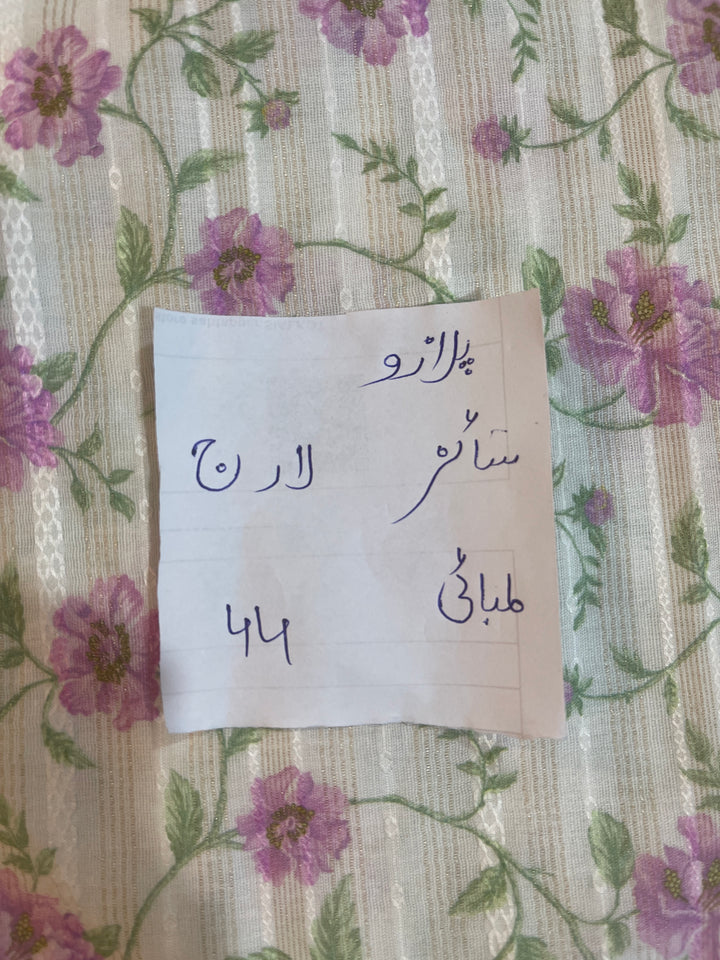 پلازو
سائز لارج
لمبائی 44